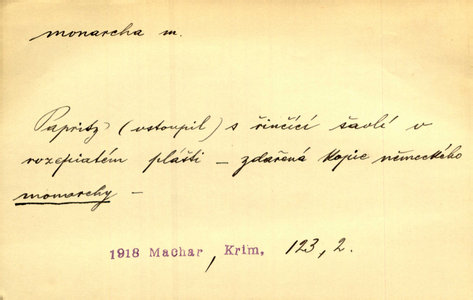 monarcha m.
Papritz (vstoupil) s řinčící šavlí v
rozepiatém plášti – zdařená kopie německého
monarchy –
1918 Machar, Krim, 123, 2.